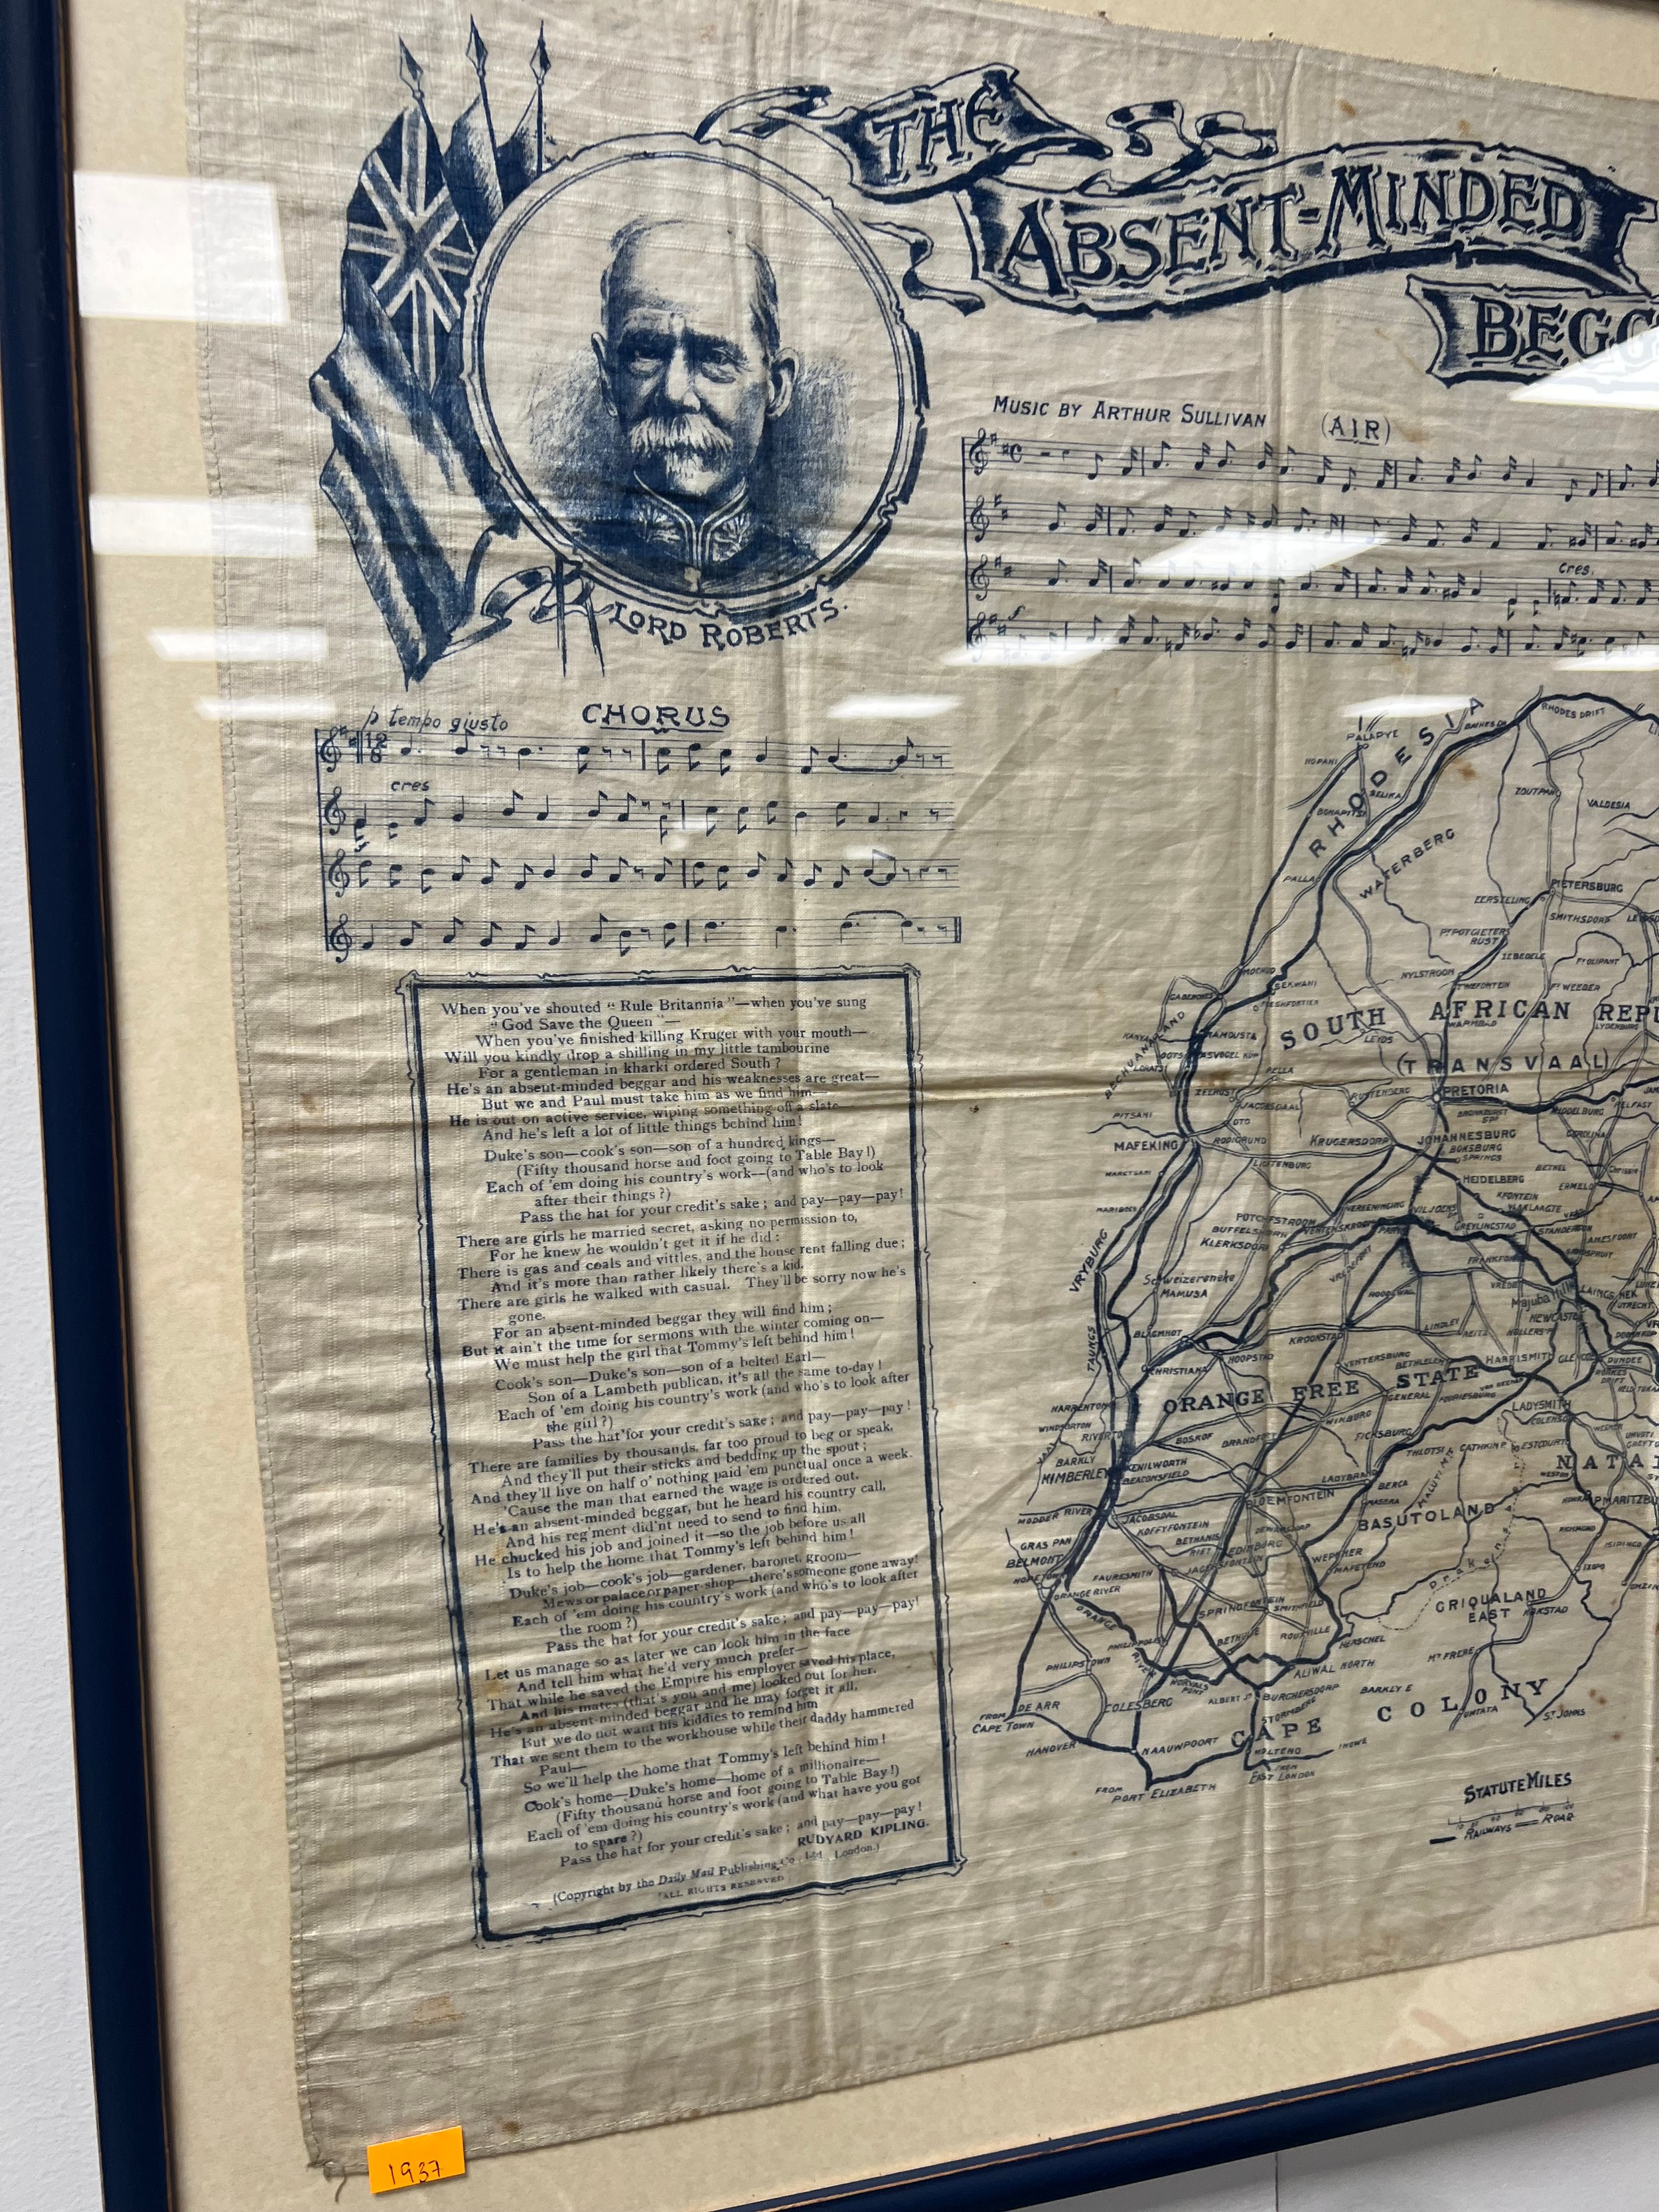 THE
ABSENT-MINDED
MUSIC BY ARTHUR SULLIVAN
(AIR)
cres.
LORD ROBERTS.
p tempo giusto
CHORUS
cres
When you've shouted “ Rule Britannia ”—when you've sung
“ God Save the Queen ”—
When you've finished killing Kruger with your mouth—
Will you kindly drop a shilling in my little tambourine
For a gentleman in kharki ordered South ?
He's an absent-minded beggar and his weaknesses are great—
But we and Paul must take him as we find him—
He is out on active service, wiping something off a slate—
And he's left a lot of little things behind him!
Duke's son—cook's son—son of a hundred kings—
(Fifty thousand horse and foot going to Table Bay !)
Each of 'em doing his country's work—(and who's to look
after their things ?)
Pass the hat for your credit's sake ; and pay—pay—pay!
There are girls he married secret, asking no permission to,
For he knew he wouldn't get it if he did :
There is gas and coals and vittles, and the house rent falling due ;
And it's more than rather likely there's a kid.
There are girls he walked with casual. They'll be sorry now he's
gone.
For an absent-minded beggar they will find him ;
But it ain't the time for sermons with the winter coming on—
We must help the girl that Tommy's left behind him !
Cook's son—Duke's son—son of a belted Earl—
Son of a Lambeth publican, it's all the same to-day !
Each of 'em doing his country's work (and who's to look after
the girl ?)
Pass the hat for your credit's sake ; and pay—pay—pay !
There are families by thousands, far too proud to beg or speak,
And they'll put their sticks and bedding up the spout ;
And they'll live on half o' nothing paid 'em punctual once a week.
'Cause the man that earned the wage is ordered out.
He's an absent-minded beggar, but he heard his country call,
And his reg'ment did'nt need to send to find him.
He chucked his job and joined it—so the job before us all
Is to help the home that Tommy's left behind him !
Duke's job—cook's job—gardener, baronet, groom—
Mews or palace or paper-shop—there's someone gone away!
Each of 'em doing his country's work (and who's to look after
the room ?)
Pass the hat for your credit's sake ; and pay—pay—pay!
Let us manage so as later we can look him in the face
And tell him what he'd very much prefer—
That while he saved the Empire his employer saved his place,
And his mates (that's you and me) looked out for her.
He's an absent-minded beggar and he may forget it all,
But we do not want his kiddies to remind him
That we sent them to the workhouse while their daddy hammered
Paul—
So we'll help the home that Tommy's left behind him !
Cook's home—Duke's home—home of a millionaire—
(Fifty thousand horse and foot going to Table Bay !)
Each of 'em doing his country's work (and what have you got
to spare ?)
Pass the hat for your credit's sake ; and pay—pay—pay !
RUDYARD KIPLING.
(Copyright by the Daily Mail Publishing Co., Ltd., London.)
ALL RIGHTS RESERVED
RHODES DRIFT
RHODESIA
PALAPYE
SELIKA
ZOUTPAN
VALDESIA
WATERBERG
PALLA
PIETERSBURG
EERSTELING
SMITHSDORP
NYLSTROOM
SOUTH AFRICAN
(TRANSVAAL)
LEYDS
PELLA
PRETORIA
MIDDELBURG
BELFAST
PITSANI
MAFEKING
OTO
RODIGRUND
LICHTENBURG
KRUGERSDORP
JOHANNESBURG
BOKSBURG
SPRINGS
BETHEL
ERMELO
CAROLINA
HEIDELBERG
POTCHFSTROOM
KLERKSDORP
GREYLINGSTAD
VRYBURG
Schweizereneke
MAMUSA
TAUNGS
BLAGNHOT
CHRISTIANA
HOOPSTAD
KROONSTAD
LINDLEY
Majuba Hill
NEWCASTLE
UTRECHT
VENTERSBURG
BETHLEHEM
HARRISMITH
DUNDEE
ORANGE FREE STATE
WINBURG
FICKSBURG
LADYSMITH
COLENSO
ESTCOURT
WINDSORTON
BARKLY
KIMBERLEY
KENILWORTH
BEACONSFIELD
BOSKOF
BRANDFORT
LADYBRAND
BLOEMFONTEIN
BASUTOLAND
MODDER RIVER
JACOBSDAL
KOFFYFONTEIN
EDINBURG
GRAS PAN
BELMONT
ORANGE RIVER
FAURESMITH
WEPENER
MAFETENG
SPRINGFONTEIN
SMITHFIELD
GRIQUALAND
EAST
KOKSTAD
BETHULIE
ROUXVILLE
HERSCHEL
PHILIPSTOWN
ALIWAL NORTH
MT FRERE
DE ARR
COLESBERG
BURGHERSDORP
BARKLY E
FROM
CAPE TOWN
CAPE COLONY
UMTATA
ST JOHNS
HANOVER
NAAUWPOORT
MOLTENO
FROM
EAST LONDON
FROM
PORT ELIZABETH
STATUTE MILES
RAILWAYS
ROAD
1937